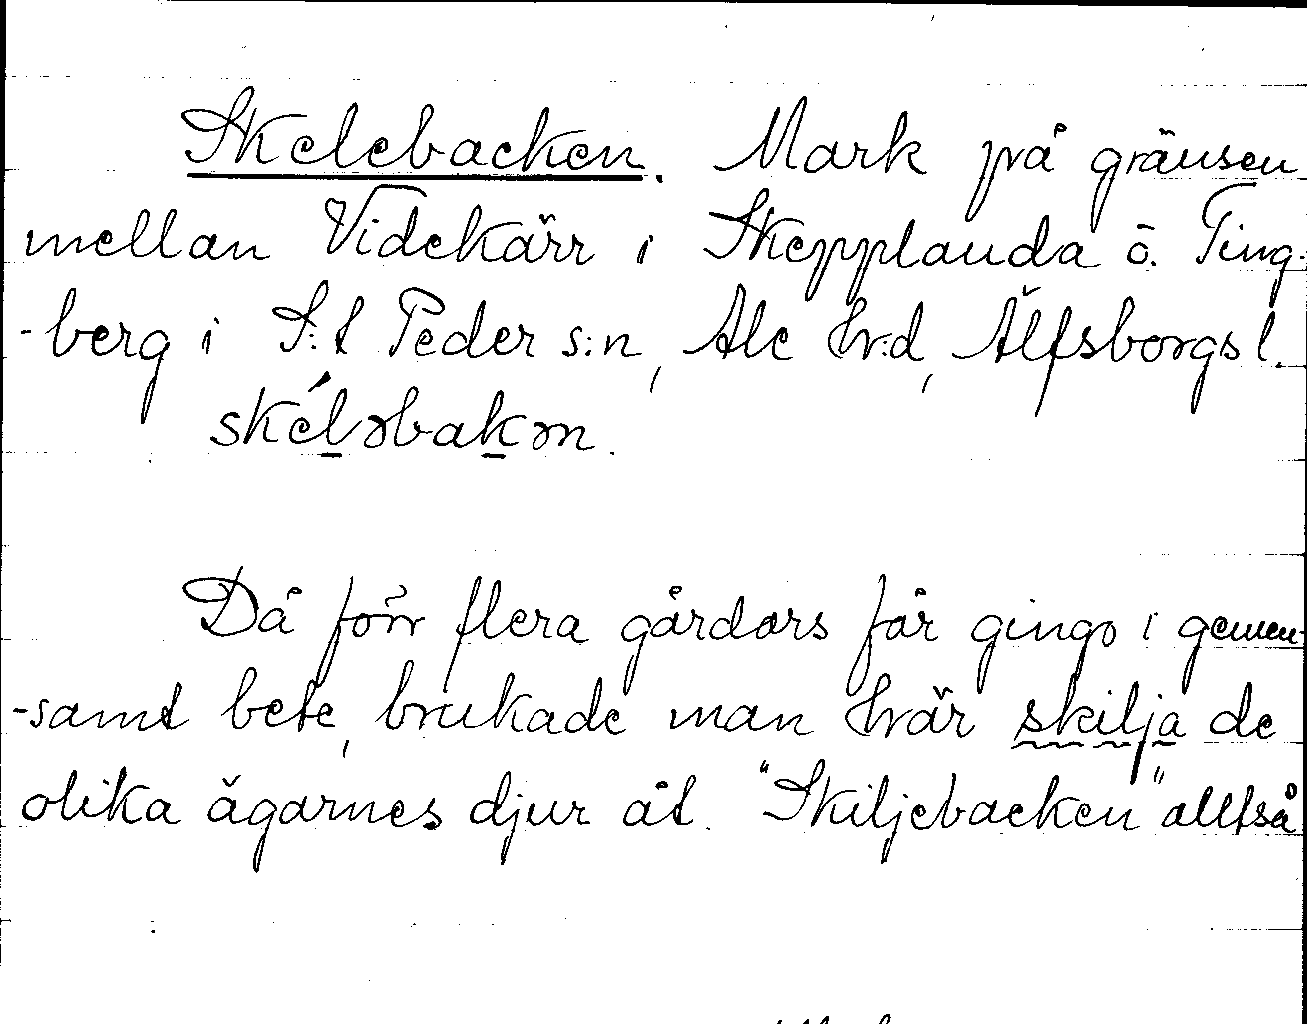 Skelebacken. Mark på gränsen
mellan Videkärr i Skepplanda o. Ting-
-berg i S:t Peder s:n, Ale hr:d, Älfsborgs l.
skélǝbakǝn.
Då förr flera gårdars får gingo i gemen-
-samt bete, brukade man hvär skilja de
olika ägarnes djur åt. "Skiljebacken" alltså